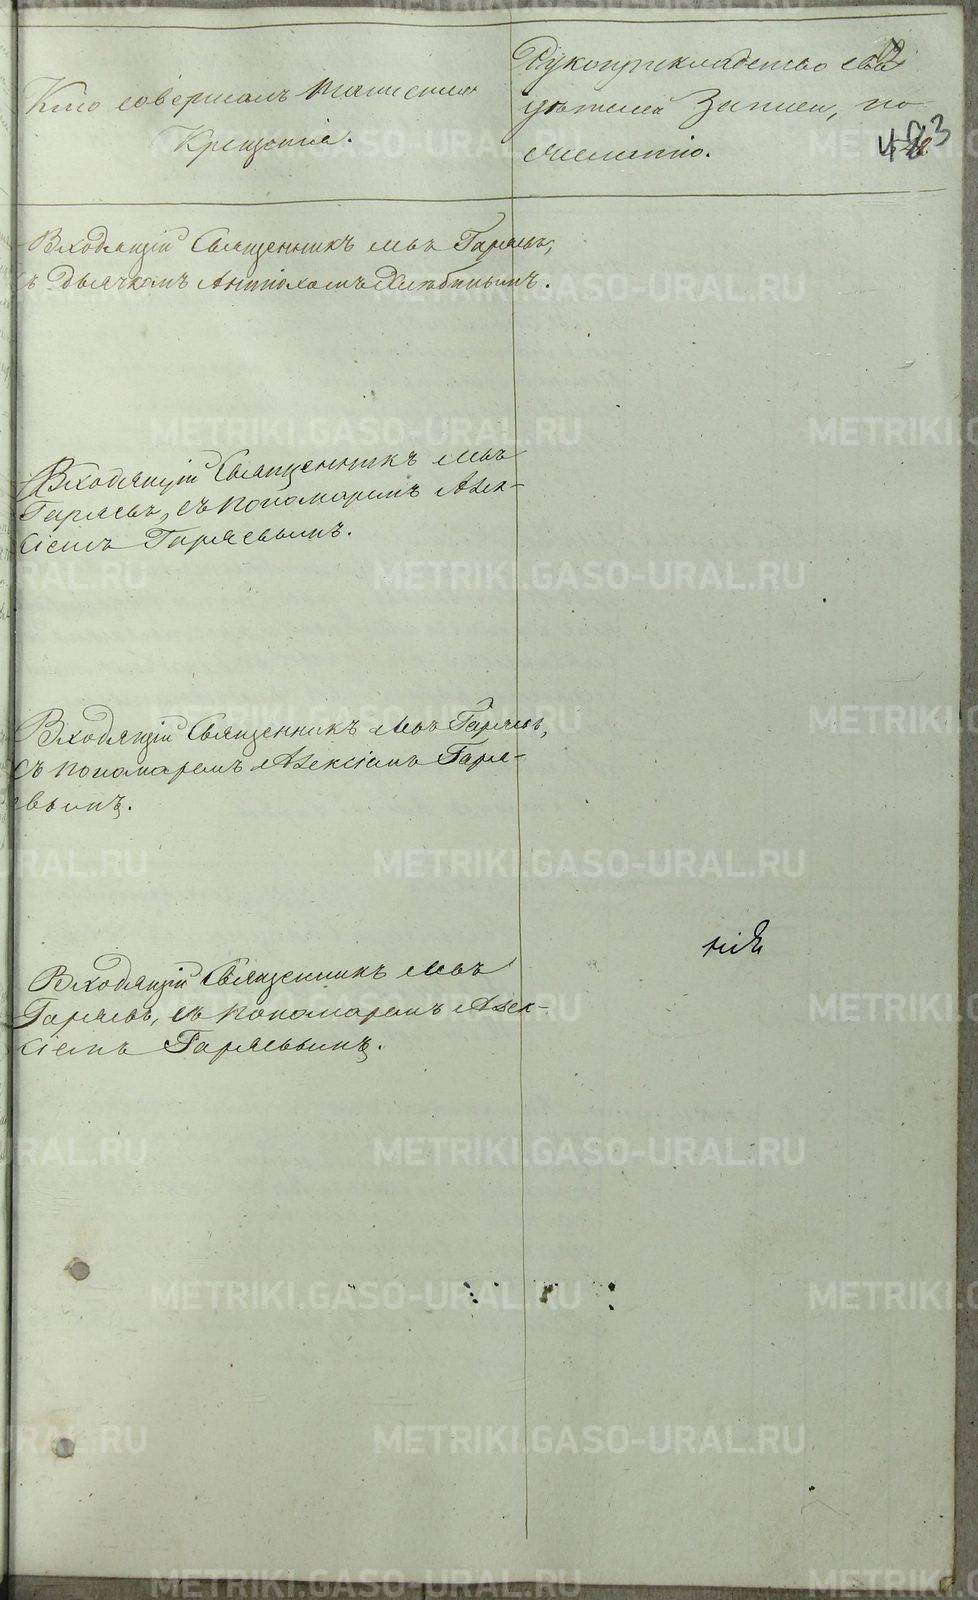 Кто совершалъ таинство
Крещенія.
Рукоприкладство сви
дѣтелей записи, по
желанію.
483
Входящій Священникъ Левъ Гаряевъ,
съ Дьячкомъ Антіохомъ
Входящій Священникъ Левъ
Гаряевъ, съ пономаремъ Алек-
сіемъ Гаряевымъ.
Входящій Священникъ Левъ Гаряевъ,
съ пономаремъ Алексіемъ Гаря-
евымъ.
Входящій Священникъ Левъ
Гаряевъ, съ пономаремъ Алек-
сіемъ Гаряевымъ.
METRIKI.GASO-URAL.RU